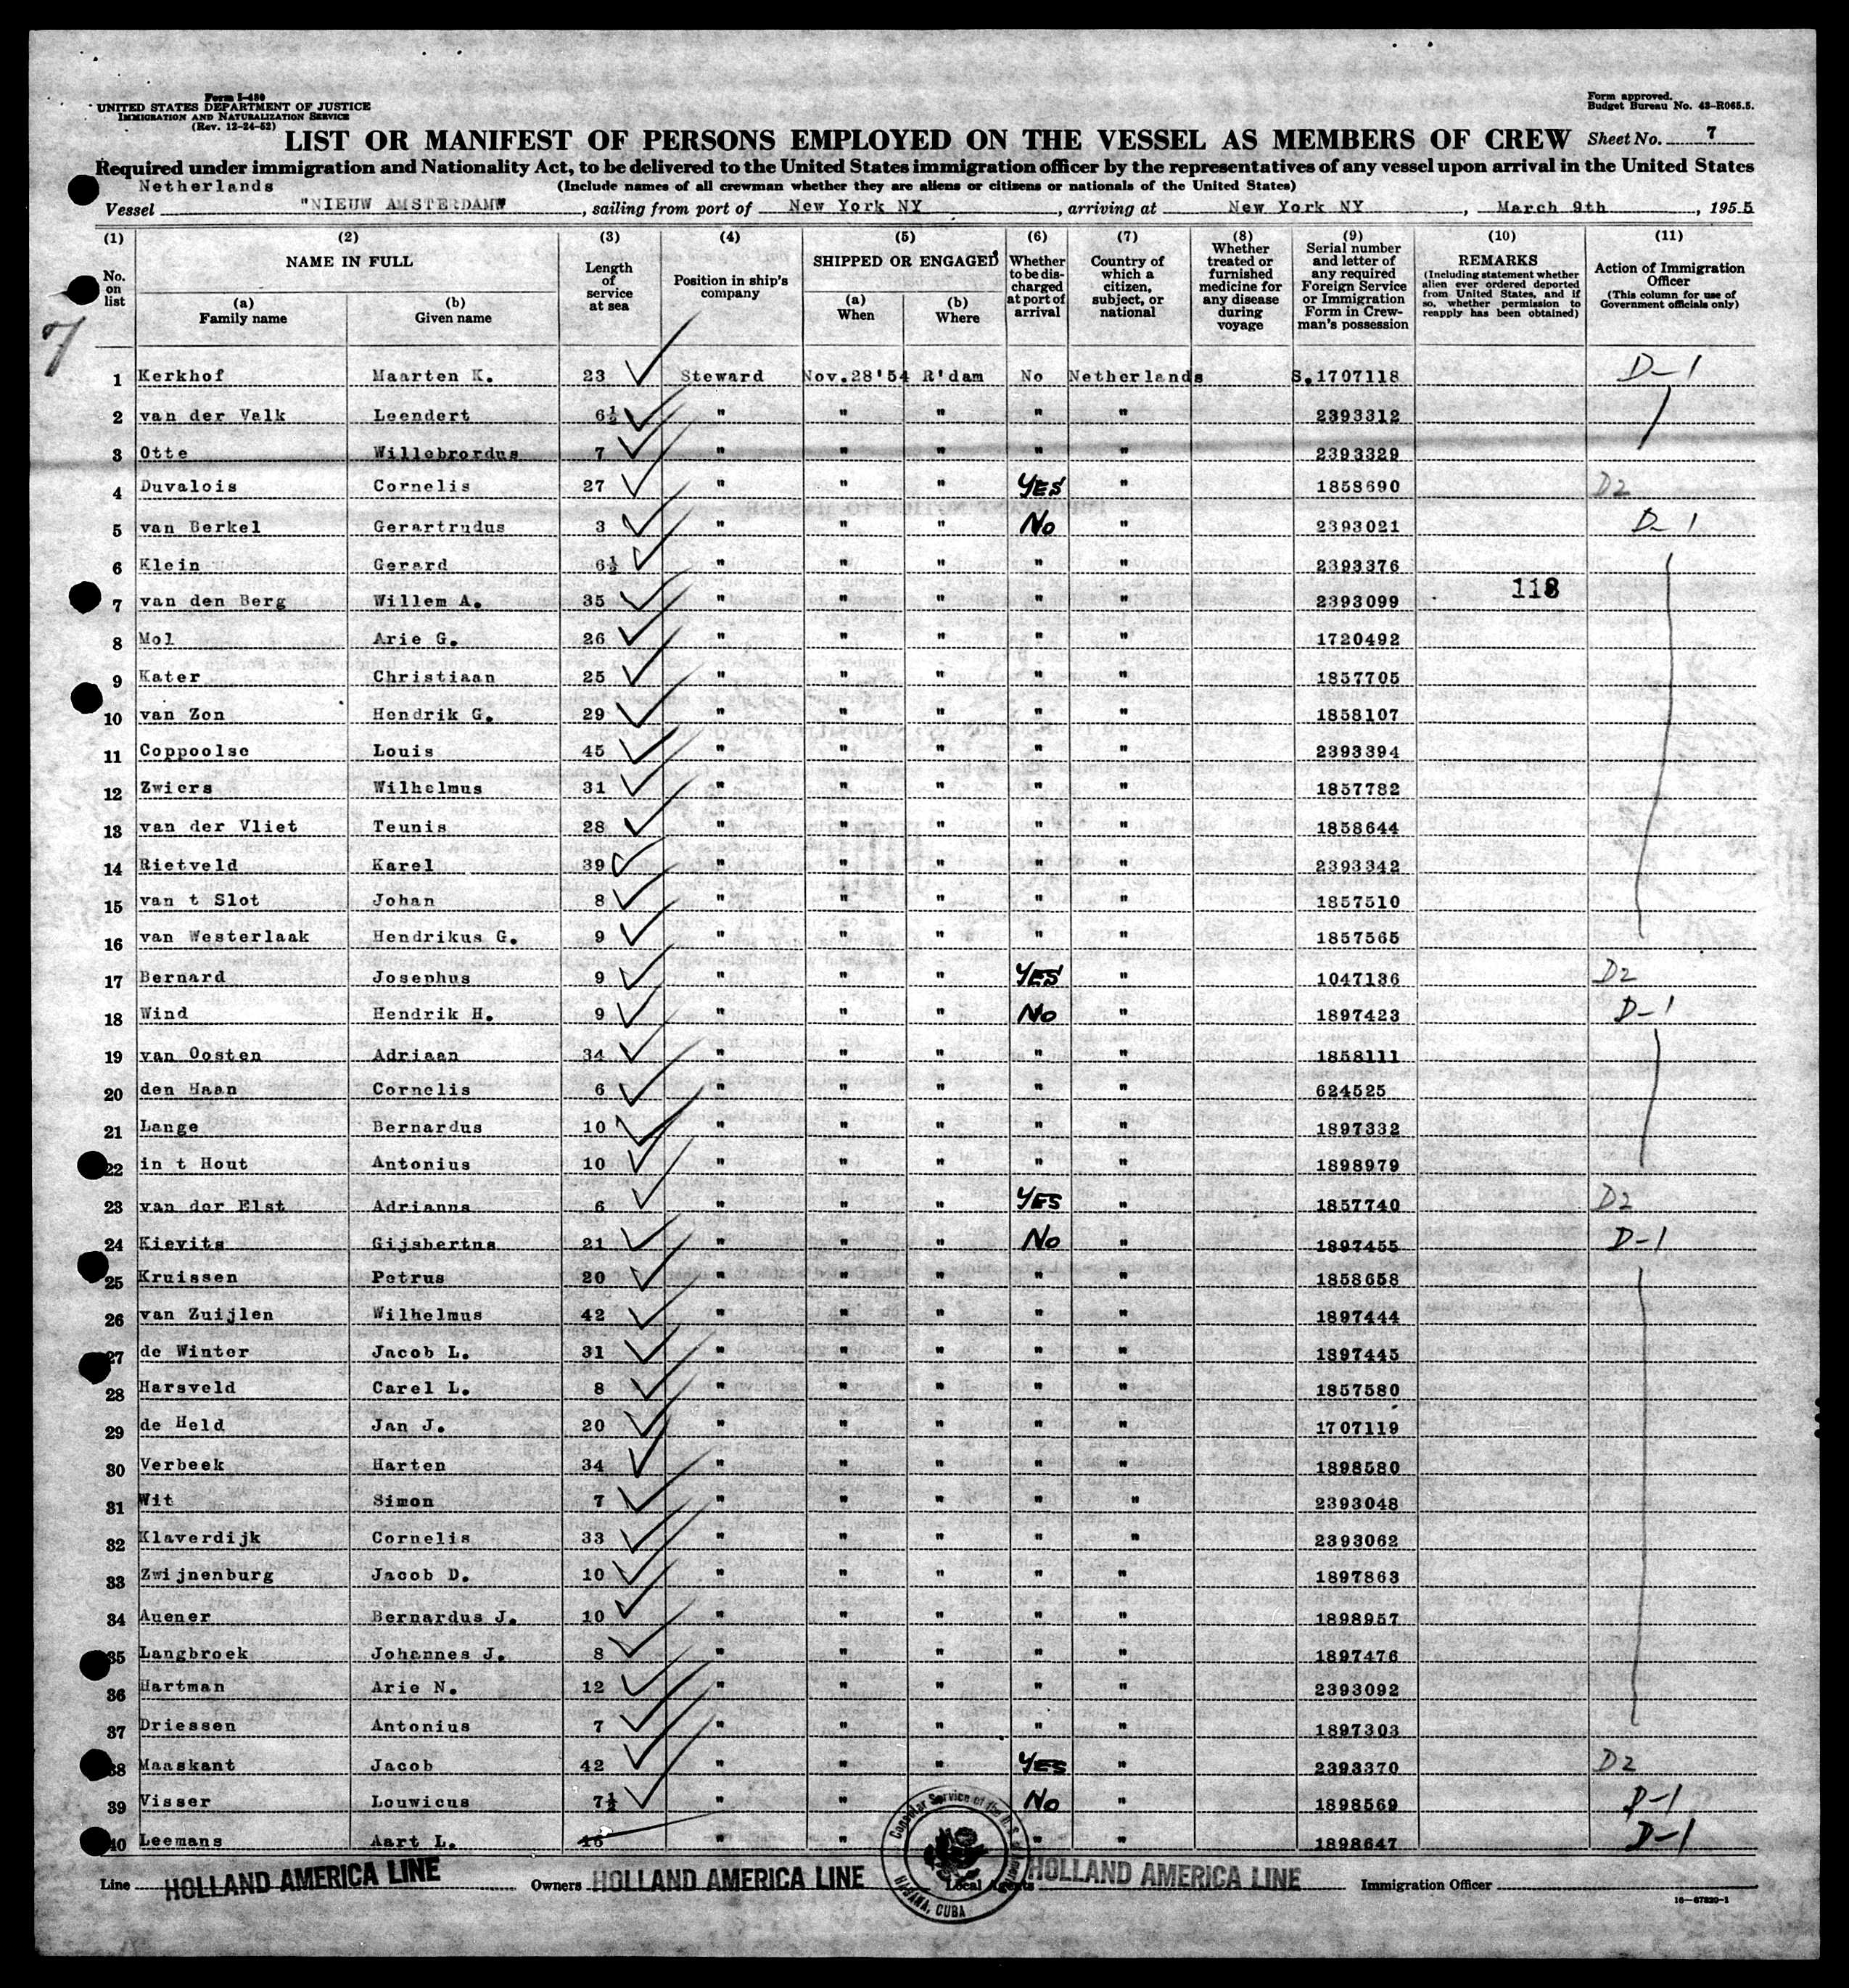 Form I-480
UNITED STATES DEPARTMENT OF JUSTICE
IMMIGRATION AND NATURALIZATION SERVICE
(Rev. 12-24-52)
Form approved.
Budget Bureau No. 43-R065.5.
LIST OR MANIFEST OF PERSONS EMPLOYED ON THE VESSEL AS MEMBERS OF CREW Sheet No. 7
Required under immigration and Nationality Act, to be delivered to the United States immigration officer by the representatives of any vessel upon arrival in the United States
Netherlands (Include names of all crewman whether they are aliens or citizens or nationals of the United States)
Vessel "NIEUW AMSTERDAM", sailing from port of New York NY, arriving at New York NY, March 9th, 1955
(1) (2) (3) (4) (5) (6) (7) (8) (9) (10) (11)
No. on list
NAME IN FULL
(a) Family name
(b) Given name
Length of service at sea
Position in ship's company
SHIPPED OR ENGAGED
(a) When
(b) Where
Whether to be discharged at port of arrival
Country of which a citizen, subject, or national
Whether treated or furnished medicine for any disease during voyage
Serial number and letter of any required Foreign Service or Immigration Form in Crewman's possession
REMARKS
(Including statement whether alien ever ordered deported from United States, and if so, whether permission to reapply has been obtained)
Action of Immigration Officer
(This column for use of Government officials only)
7
1 Kerkhof Maarten K. 23 Steward Nov.28'54 R'dam No Netherlands S.1707118 D-1
2 van der Valk Leendert 6½ " " " " " 2393312
3 Otte Willebrordus 7 " " " " " 2393329
4 Duvalois Cornelis 27 " " " YES " 1858690 D2
5 van Berkel Gerartrudus 3 " " " No " 2393021 D-1
6 Klein Gerard 6½ " " " " " 2393376
7 van den Berg Willem A. 35 " " " " " 2393099 118
8 Mol Arie G. 26 " " " " " 1720492
9 Kater Christiaan 25 " " " " " 1857705
10 van Zon Hendrik G. 29 " " " " " 1858107
11 Coppoolse Louis 45 " " " " " 2393394
12 Zwiers Wilhelmus 31 " " " " " 1857782
13 van der Vliet Teunis 28 " " " " " 1858644
14 Rietveld Karel 39 " " " " " 2393342
15 van t Slot Johan 8 " " " " " 1857510
16 van Westerlaak Hendrikus G. 9 " " " " " 1857565
17 Bernard Josephus 9 " " " YES " 1047136 D2
18 Wind Hendrik H. 9 " " " No " 1897423 D-1
19 van Oosten Adriaan 34 " " " " " 1858111
20 den Haan Cornelis 6 " " " " " 624525
21 Lange Bernardus 10 " " " " " 1897332
22 in t Hout Antonius 10 " " " " " 1898979
23 van der Elst Adrianus 6 " " " YES " 1857740 D2
24 Kievits Gijsbertus 21 " " " No " 1897455 D-1
25 Kruissen Petrus 20 " " " " " 1858658
26 van Zuijlen Wilhelmus 42 " " " " " 1897444
27 de Winter Jacob L. 31 " " " " " 1897445
28 Harsveld Carel L. 8 " " " " " 1857580
29 de Held Jan J. 20 " " " " " 1707119
30 Verbeek Harten 34 " " " " " 1898580
31 Wit Simon 7 " " " " " 2393048
32 Klaverdijk Cornelis 33 " " " " " 2393062
33 Zwijnenburg Jacob D. 10 " " " " " 1897863
34 Auener Bernardus J. 10 " " " " " 1898957
35 Langbroek Johannes J. 8 " " " " " 1897476
36 Hartman Arie N. 12 " " " " " 2393092
37 Driessen Antonius 7 " " " " " 1897303
38 Maaskant Jacob 42 " " " YES " 2393370 D2
39 Visser Louwicus 7½ " " No " 1898569 D-1
40 Leemans Aart L. 16 " " " " 1898647 D-1
Consular Service of the U.S. of America
HABANA, CUBA
Line HOLLAND AMERICA LINE Owners HOLLAND AMERICA LINE Local Agents HOLLAND AMERICA LINE Immigration Officer
16—67820-1